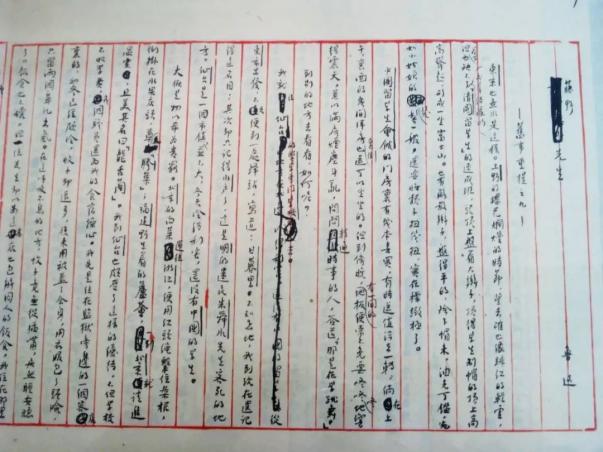 藤野先生
——舊事重提之九——
魯迅
東京也無非是這樣。上野的櫻花爛熳的時節，望去確也像緋紅的輕雲，
但花下也缺不了成群結隊的「清國留學生」的速成班，頭頂上盤着大辮子，頂得學生制帽的頂上高
高聳起，形成一座富士山。也有解散辮子，盤得平的，除下帽來，油光可鑑，宛
如小姑娘的髮髻一般，還要將脖子扭幾扭。實在標緻極了。
中國留學生會館的門房裏有幾本書買，有時還值得去一轉；倘在上
午，裏面的幾間洋房裏倒也還可以坐坐的。但到傍晚，有一間的地板便常不免要咚咚咚地響
得震天，兼以滿房煙塵斗亂；問問精通時事的人，答道，「那是在學跳舞。」
到別的地方去看看，如何呢？
我就往仙台的醫學專門學校去。從
東京出發，不久便到一處驛站，寫道：日暮里。不知怎地，我到現在還記
得這名目。其次却只記得水戶了，這是明的遺民朱舜水先生客死的地
方。仙台是一個市鎮，並不大；冬天冷得利害；還沒有中國的學生。
大概是物以希為貴罷。北京的白菜運往浙江，便用紅頭繩繫住菜根，
倒掛在水果店頭，尊為「膠菜」；福建野生着的蘆薈，一到北京就請進
溫室，且美其名曰「龍舌蘭」。我到仙台也頗受了這樣的優待，不但學校
不收學費，幾個職員還為我的食宿操心。我先是住在監獄旁邊一個客店
裏的，初冬已經頗冷，蚊子却還多，後來用被蓋了全身，用衣服包了頭臉，
只留兩個鼻孔出氣。在這呼吸不息的地方，蚊子竟無從插嘴，居然睡安穩
了。飯食也不壞。但一位先生却以為這客店也包辦囚人的飯食，我住在那里